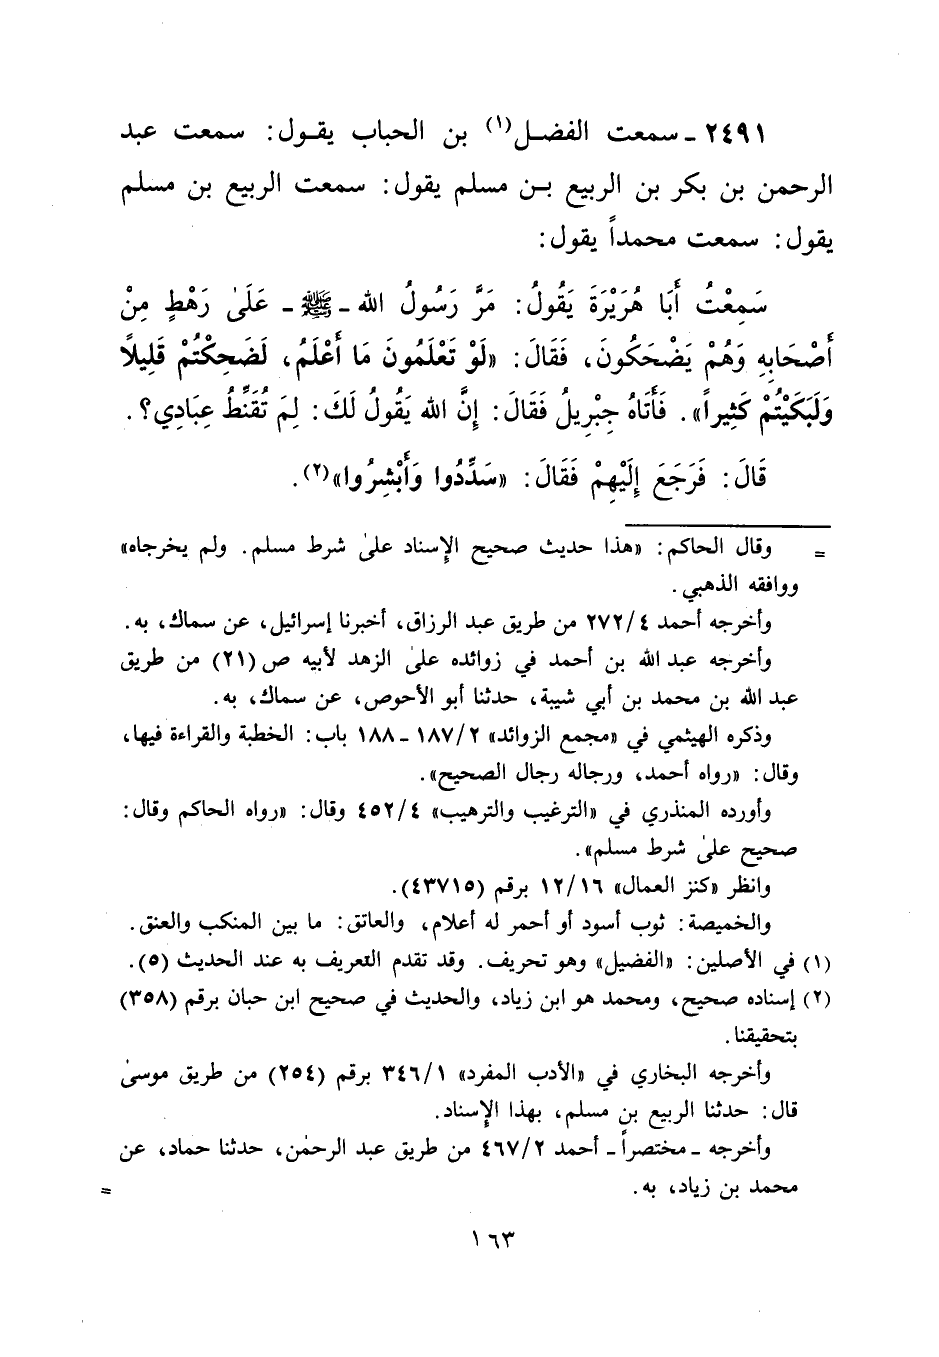 ٢٤٩١ ـ سمعت الفضل(١) بن الحباب يقول: سمعت عبد
الرحمن بن بكر بن الربيع بن مسلم يقول: سمعت الربيع بن مسلم
يقول: سمعت محمداً يقول:
سَمِعْتُ أَبَا هُرَيْرَةَ يَقُولُ: مَرَّ رَسُولُ الله ـ ﷺ ـ عَلَىٰ رَهْطٍ مِنْ
أَصْحَابِهِ وَهُمْ يَضْحَكُونَ، فَقَالَ: «لَوْ تَعْلَمُونَ مَا أَعْلَمُ، لَضَحِكْتُمْ قَلِيلًا
وَلَبَكَيْتُمْ كَثِيراً». فَأَتَاهُ جِبْرِيلُ فَقَالَ: إِنَّ الله يَقُولُ لَكَ: لِمَ تُقَنِّطُ عِبَادِي؟.
قَالَ: فَرَجَعَ إِلَيْهِمْ فَقَالَ: «سَدِّدُوا وَأَبْشِرُوا»(٢).
= وقال الحاكم: «هذا حديث صحيح الإسناد علىٰ شرط مسلم. ولم يخرجاه»
ووافقه الذهبي.
وأخرجه أحمد ٢٧٢/٤ من طريق عبد الرزاق، أخبرنا إسرائيل، عن سماك، به.
وأخرجه عبد الله بن أحمد في زوائده علىٰ الزهد لأبيه ص (٢١) من طريق
عبد الله بن محمد بن أبي شيبة، حدثنا أبو الأحوص، عن سماك، به.
وذكره الهيثمي في «مجمع الزوائد» ١٨٧/٢ ـ ١٨٨ باب: الخطبة والقراءة فيها،
وقال: «رواه أحمد، ورجاله رجال الصحيح».
وأورده المنذري في «الترغيب والترهيب» ٤٥٢/٤ وقال: «رواه الحاكم وقال:
صحيح علىٰ شرط مسلم».
وانظر «كنز العمال» ١٢/١٦ برقم (٤٣٧١٥).
والخميصة: ثوب أسود أو أحمر له أعلام، والعاتق: ما بين المنكب والعنق.
(١) في الأصلين: «الفضيل» وهو تحريف. وقد تقدم التعريف به عند الحديث (٥).
(٢) إسناده صحيح، ومحمد هو ابن زياد، والحديث في صحيح ابن حبان برقم (٣٥٨)
بتحقيقنا.
وأخرجه البخاري في «الأدب المفرد» ٣٤٦/١ برقم (٢٥٤) من طريق موسىٰ
قال: حدثنا الربيع بن مسلم، بهذا الإسناد.
وأخرجه ـ مختصراً ـ أحمد ٤٦٧/٢ من طريق عبد الرحمٰن، حدثنا حماد، عن
محمد بن زياد، به. =
١٦٣